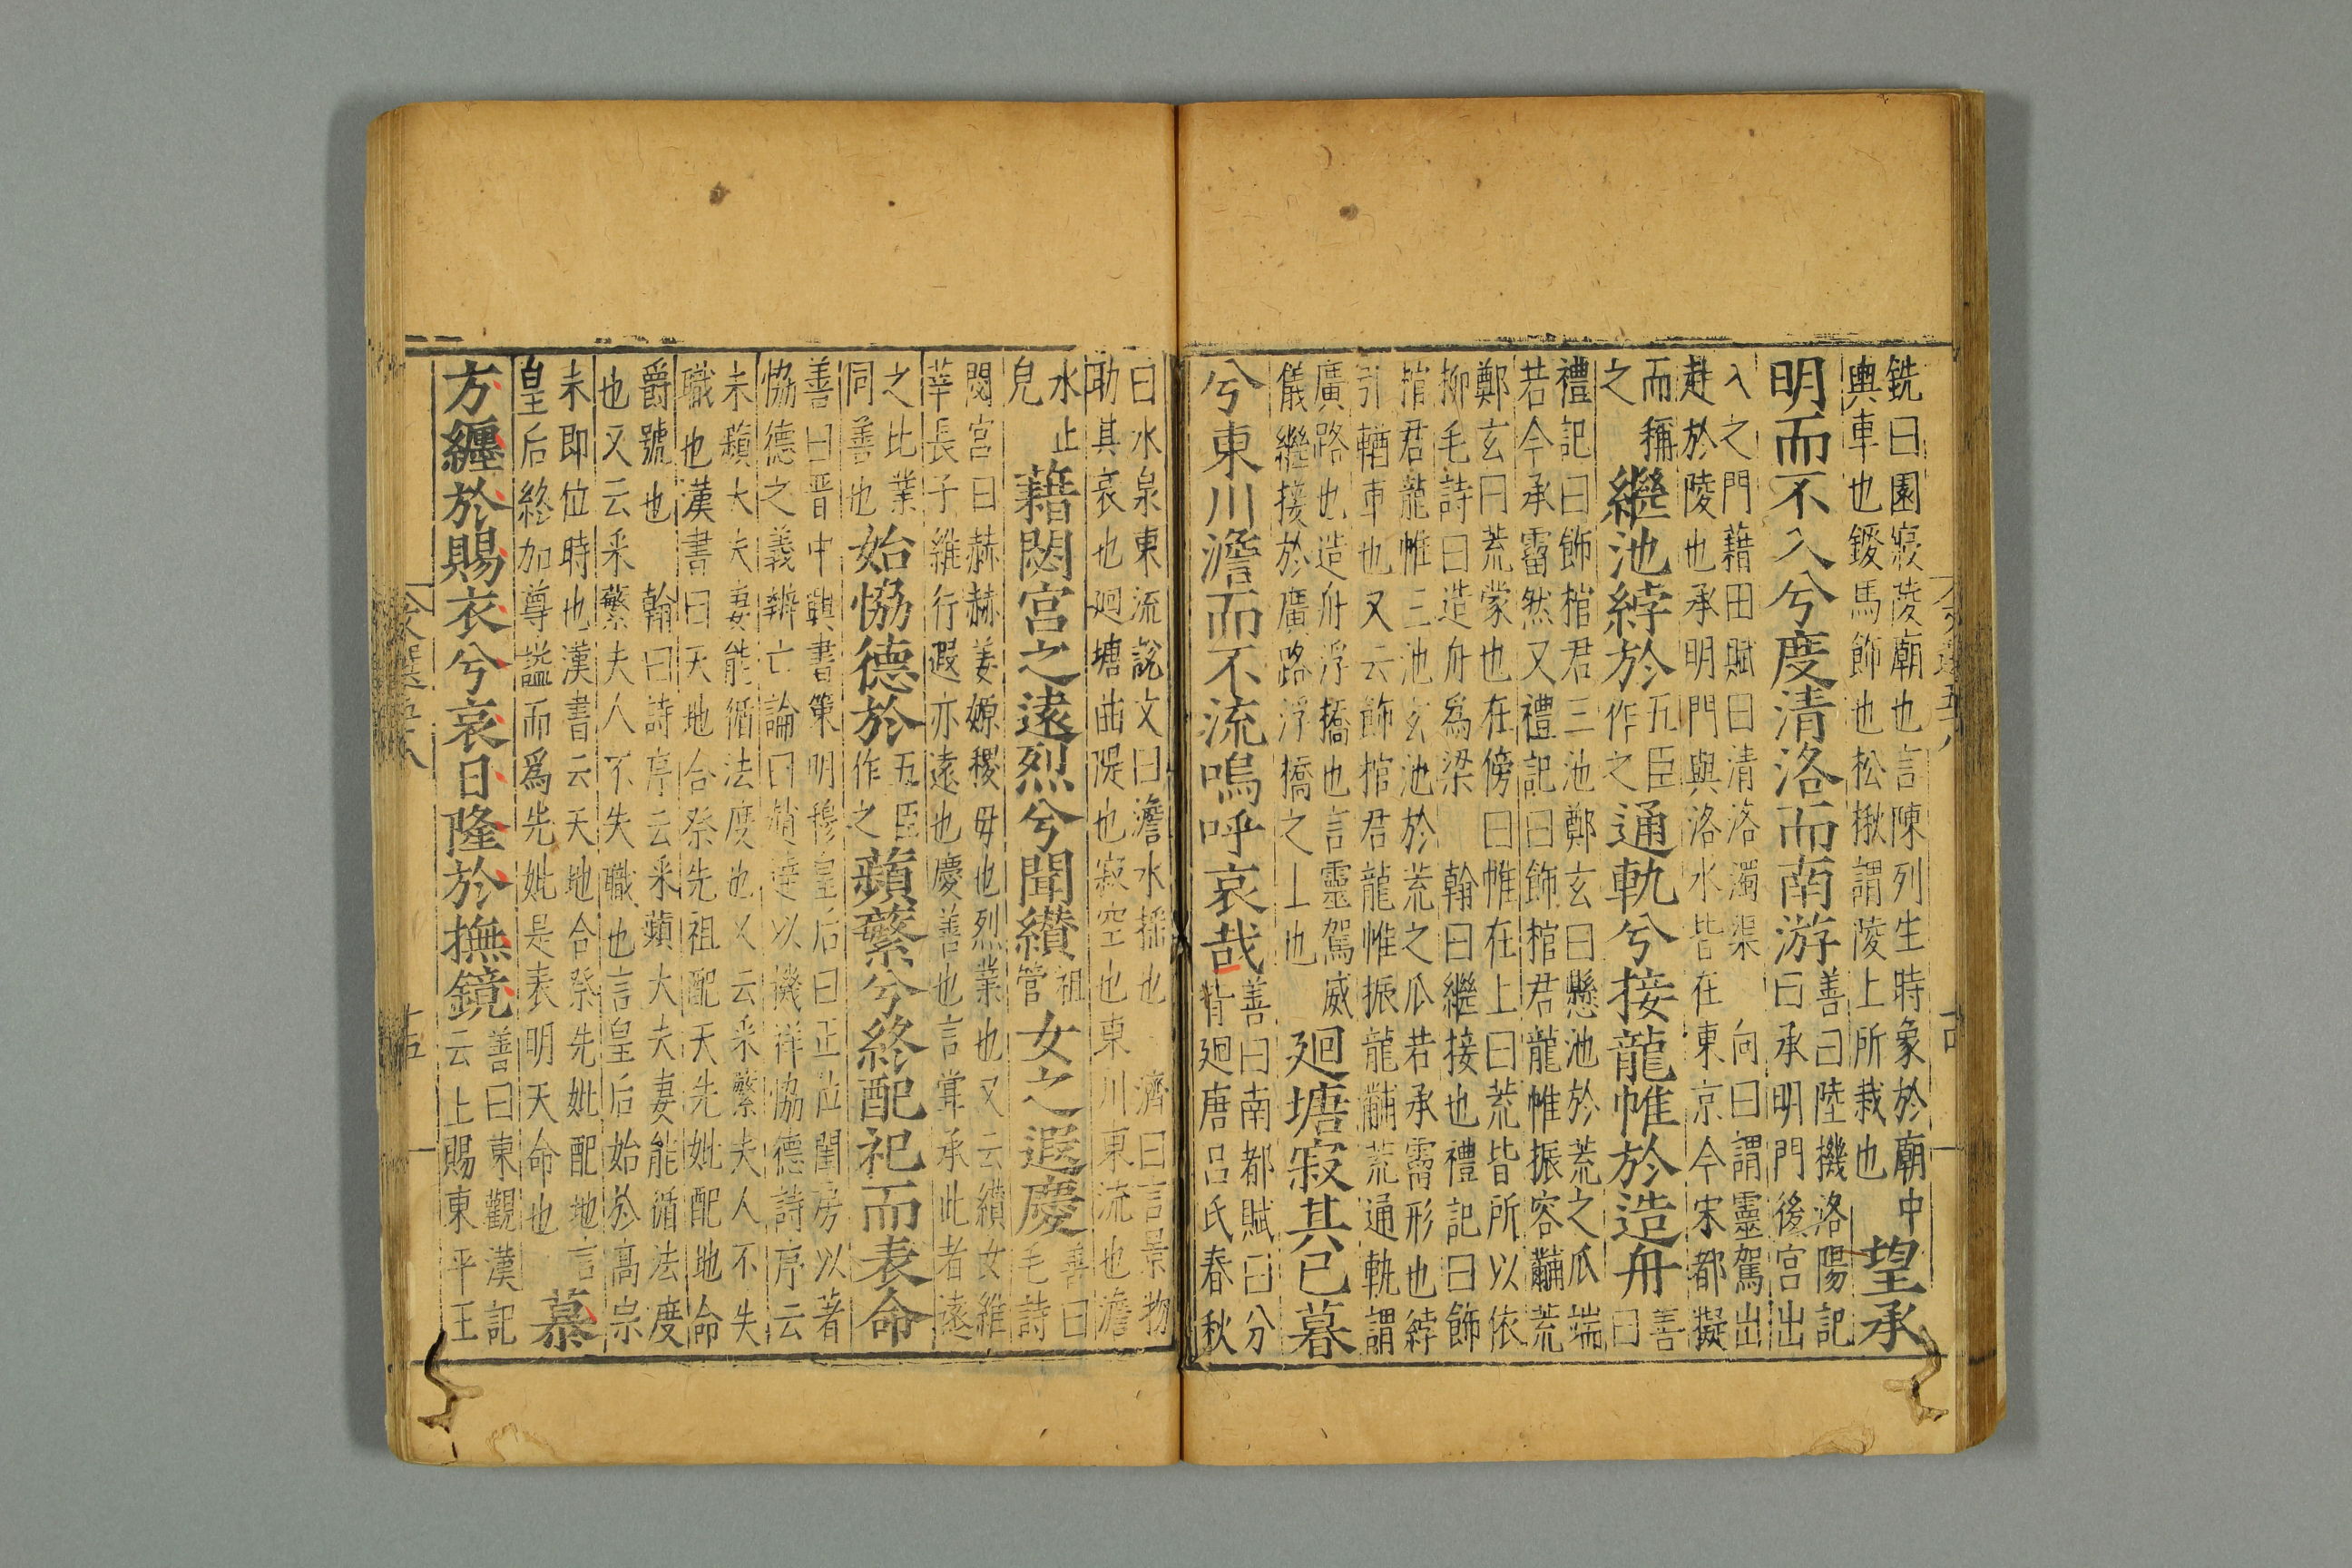 銑曰園寢陵廟也言陳列生時象於廟中
輿車也鍐馬飾也松楸謂陵上所栽也望承
明而不入兮度清洛而南游善曰陸機洛陽記
曰承明門後宮出
入之門藉田賦曰清洛濁渠 向曰謂靈駕出
赴於陵也承明門與洛水皆在東京今宋都擬
而稱
之繼池綍於五臣
作之通軌兮接龍帷於造舟善
曰
禮記曰飾棺君三池鄭玄曰懸池於荒之爪端
若今承霤然又禮記曰飾棺君龍帷振容黼荒
鄭玄曰荒蒙也在傍曰帷在上曰荒皆所以依
柳毛詩曰造舟爲梁 翰曰繼接也禮記曰飾
棺君龍帷三池玄池於荒之爪若承霤形也綍
引輴車也又云飾棺君龍帷振龍黼荒通軌謂
廣路也造舟浮橋也言靈駕威
儀繼接於廣路浮橋之上也廻塘寂其已暮
兮東川澹而不流嗚呼哀哉善曰南都賦曰分
背廻唐呂氏春秋
曰水泉東流說文曰澹水搖也 濟曰言景物
助其哀也廻塘曲隄也寂空也東川東流也澹
水止
皃藉閟宮之遠烈兮聞纘祖
管女之遐慶善曰
毛詩
閟宮曰赫赫姜嫄稷毋也烈業也又云纘女維
莘長子維行遐亦遠也慶善也言甞承此者遠
之比業
同善也始恊德於五臣
作之蘋蘩兮終配祀而表命
善曰晉中興書策明穆皇后曰正位閨房以著
恊德之義辨亡論曰趙達以機祥協德詩序云
未蘋大夫妻能循法度也又云采蘩夫人不失
職也漢書曰天地合祭先祖配天先妣配地命
爵號也 翰曰詩序云采蘋大夫妻能循法度
也又云采蘩夫人不失職也言皇后始於高宗
未即位時也漢書云天地合祭先妣配地言
皇后終加尊謚而爲先妣是表明天命也慕
方纏於賜衣兮哀日隆於撫鏡善曰東觀漢記
云上賜東平王